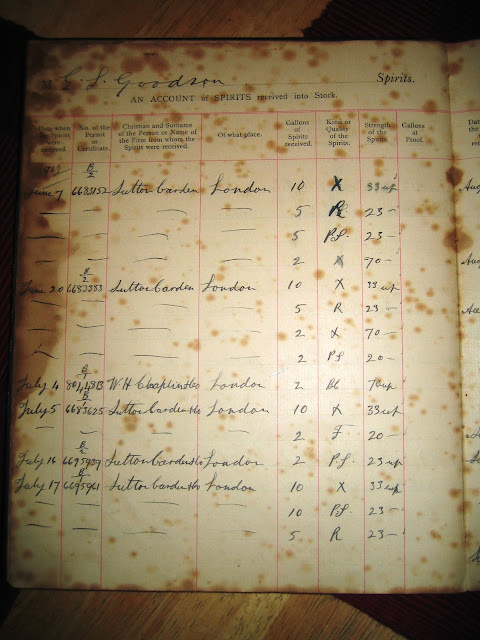 M E. L. Goodson Spirits.
AN ACCOUNT of SPIRITS received into Stock.
Date when the Spirits were received. No. of the Permit or Certificate. Christian and Surname of the Person or Name of the Firm from whom the Spirits were received. Of what place. Gallons of Spirits received. Kind or Quality of the Spirits. Strength of the Spirits. Gallons at Proof.
B/2
June 7 6683152 Sutton Carden London 10 X 33 up
— — — — 5 23 —
— — — — 5 P.S. 23 —
— — — — 2 X 70 —
B/2
June 20 Sutton Carden London 10 X 33 up
— — — — 5 R 23 —
— — — — 2 X 70 —
— — — — 2 PS 20 —
B/1
July 4 W. H. Chaplin & Co London 2 70 up
B
July 5 6683625 Sutton Carden & Co London 10 X 33 up
— — — — 2 F 20 —
B/2
July 16 6695939 Sutton Carden & Co London 2 P.S. 23 up
B
July 17 6695961 Sutton Carden & Co London 10 X 33 up
— — — — 10 P.S. 23 —
— — — — 5 R 23 —